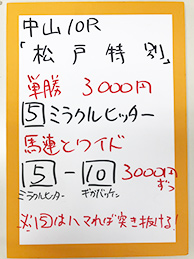 中山10R
「松戸特別」
単勝 3000円
5 ミラクルヒッター
馬連とワイド
5 - 10 3000円ずつ
ミラクルヒッター ギガバッケン
必ず5はハマれば突き抜ける!